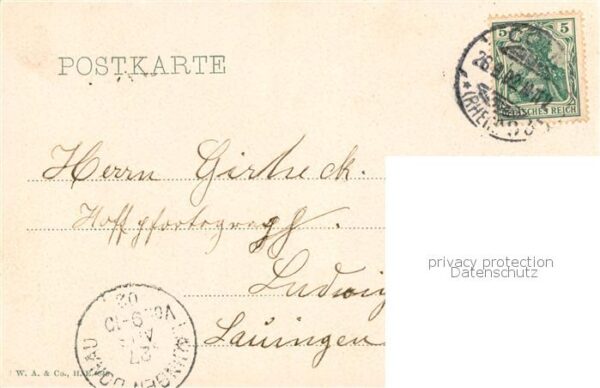 POSTKARTE
5 5
DEUTSCHES REICH
Herrn Girbeck.
Hoffphotograph
Ludwig
Lauingen
privacy protection
Datenschutz
LAUINGEN DONAU
27
W. A. & Co., H.